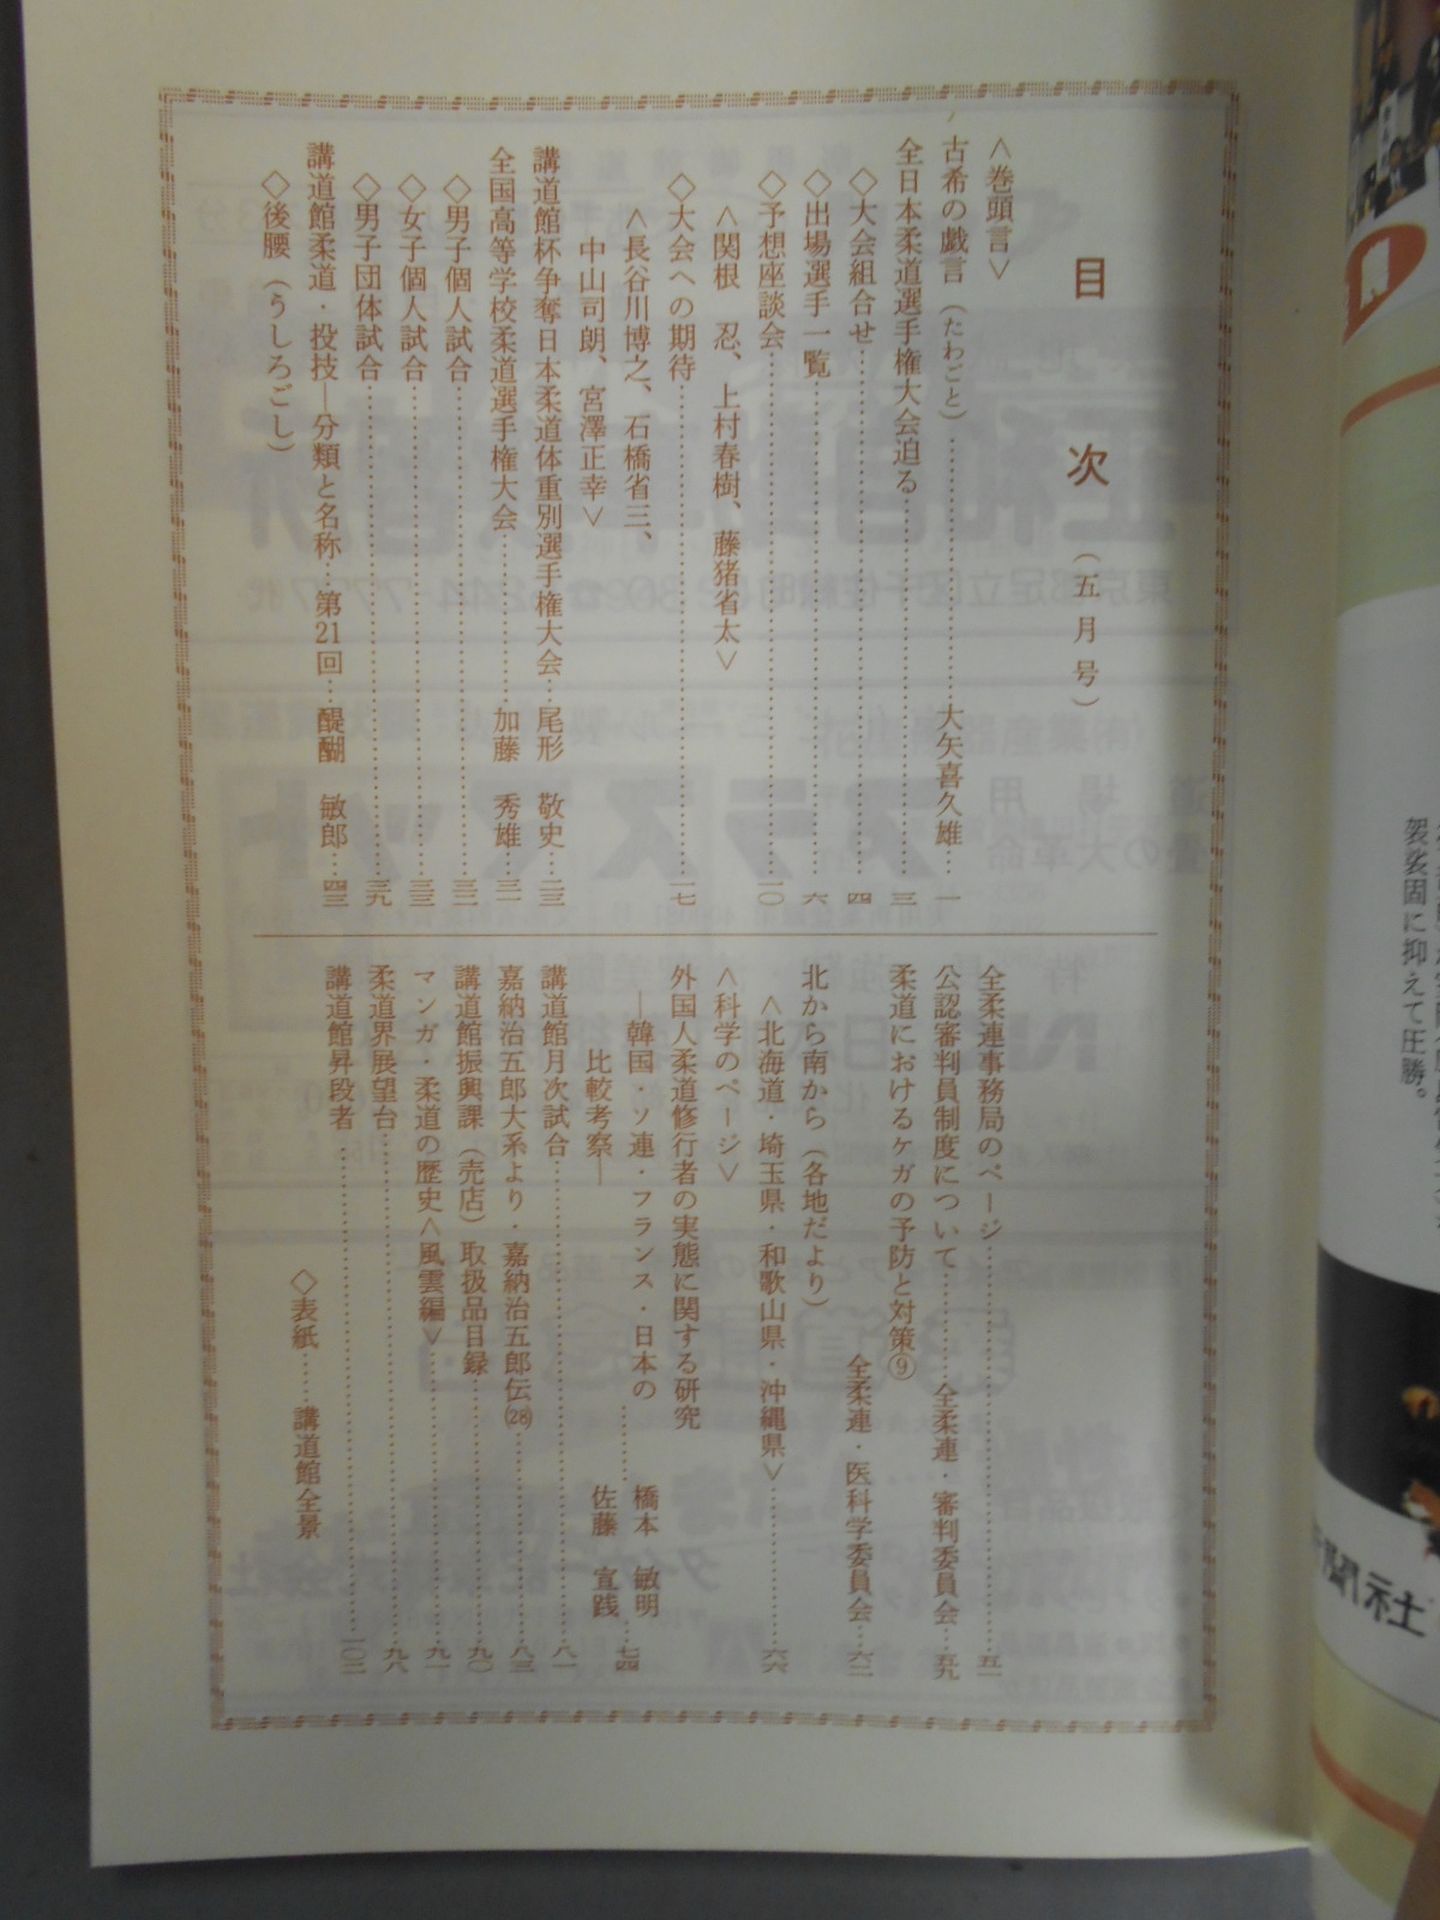 目次（五月号）
＜巻頭言＞
古希の戯言（たわごと）…………大矢喜久雄…一
全日本柔道選手権大会迫る…………三
◇大会組合せ…………四
◇出場選手一覧…………六
◇予想座談会…………一〇
＜関根　忍、上村春樹、藤猪省太＞
◇大会への期待…………一七
＜長谷川博之、石橋省三、
中山司朗、宮澤正幸＞
講道館杯争奪日本柔道体重別選手権大会…尾形　敬史…二三
全国高等学校柔道選手権大会…………加藤　秀雄…三一
◇男子個人試合…………三二
◇女子個人試合…………三三
◇男子団体試合…………三九
講道館柔道・投技―分類と名称・第21回…醍醐　敏郎…四三
◇後腰（うしろごし）
全柔連事務局のページ…………五一
公認審判員制度について…………全柔連・審判委員会…五九
柔道におけるケガの予防と対策⑨　全柔連・医科学委員会…六二
北から南から（各地だより）
＜北海道・埼玉県・和歌山県・沖縄県＞…………六六
＜科学のページ＞
外国人柔道修行者の実態に関する研究
―韓国・ソ連・フランス・日本の
比較考察―…………橋本　敏明
佐藤　宣践…七四
講道館月次試合…………八一
嘉納治五郎大系より・嘉納治五郎伝(28)…………八三
講道館振興課（売店）取扱品目録…………九〇
マンガ・柔道の歴史＜風雲編＞…………九一
柔道界展望台…………九八
講道館昇段者…………一〇二
◇表紙……講道館全景
袈裟固に抑えて圧勝。